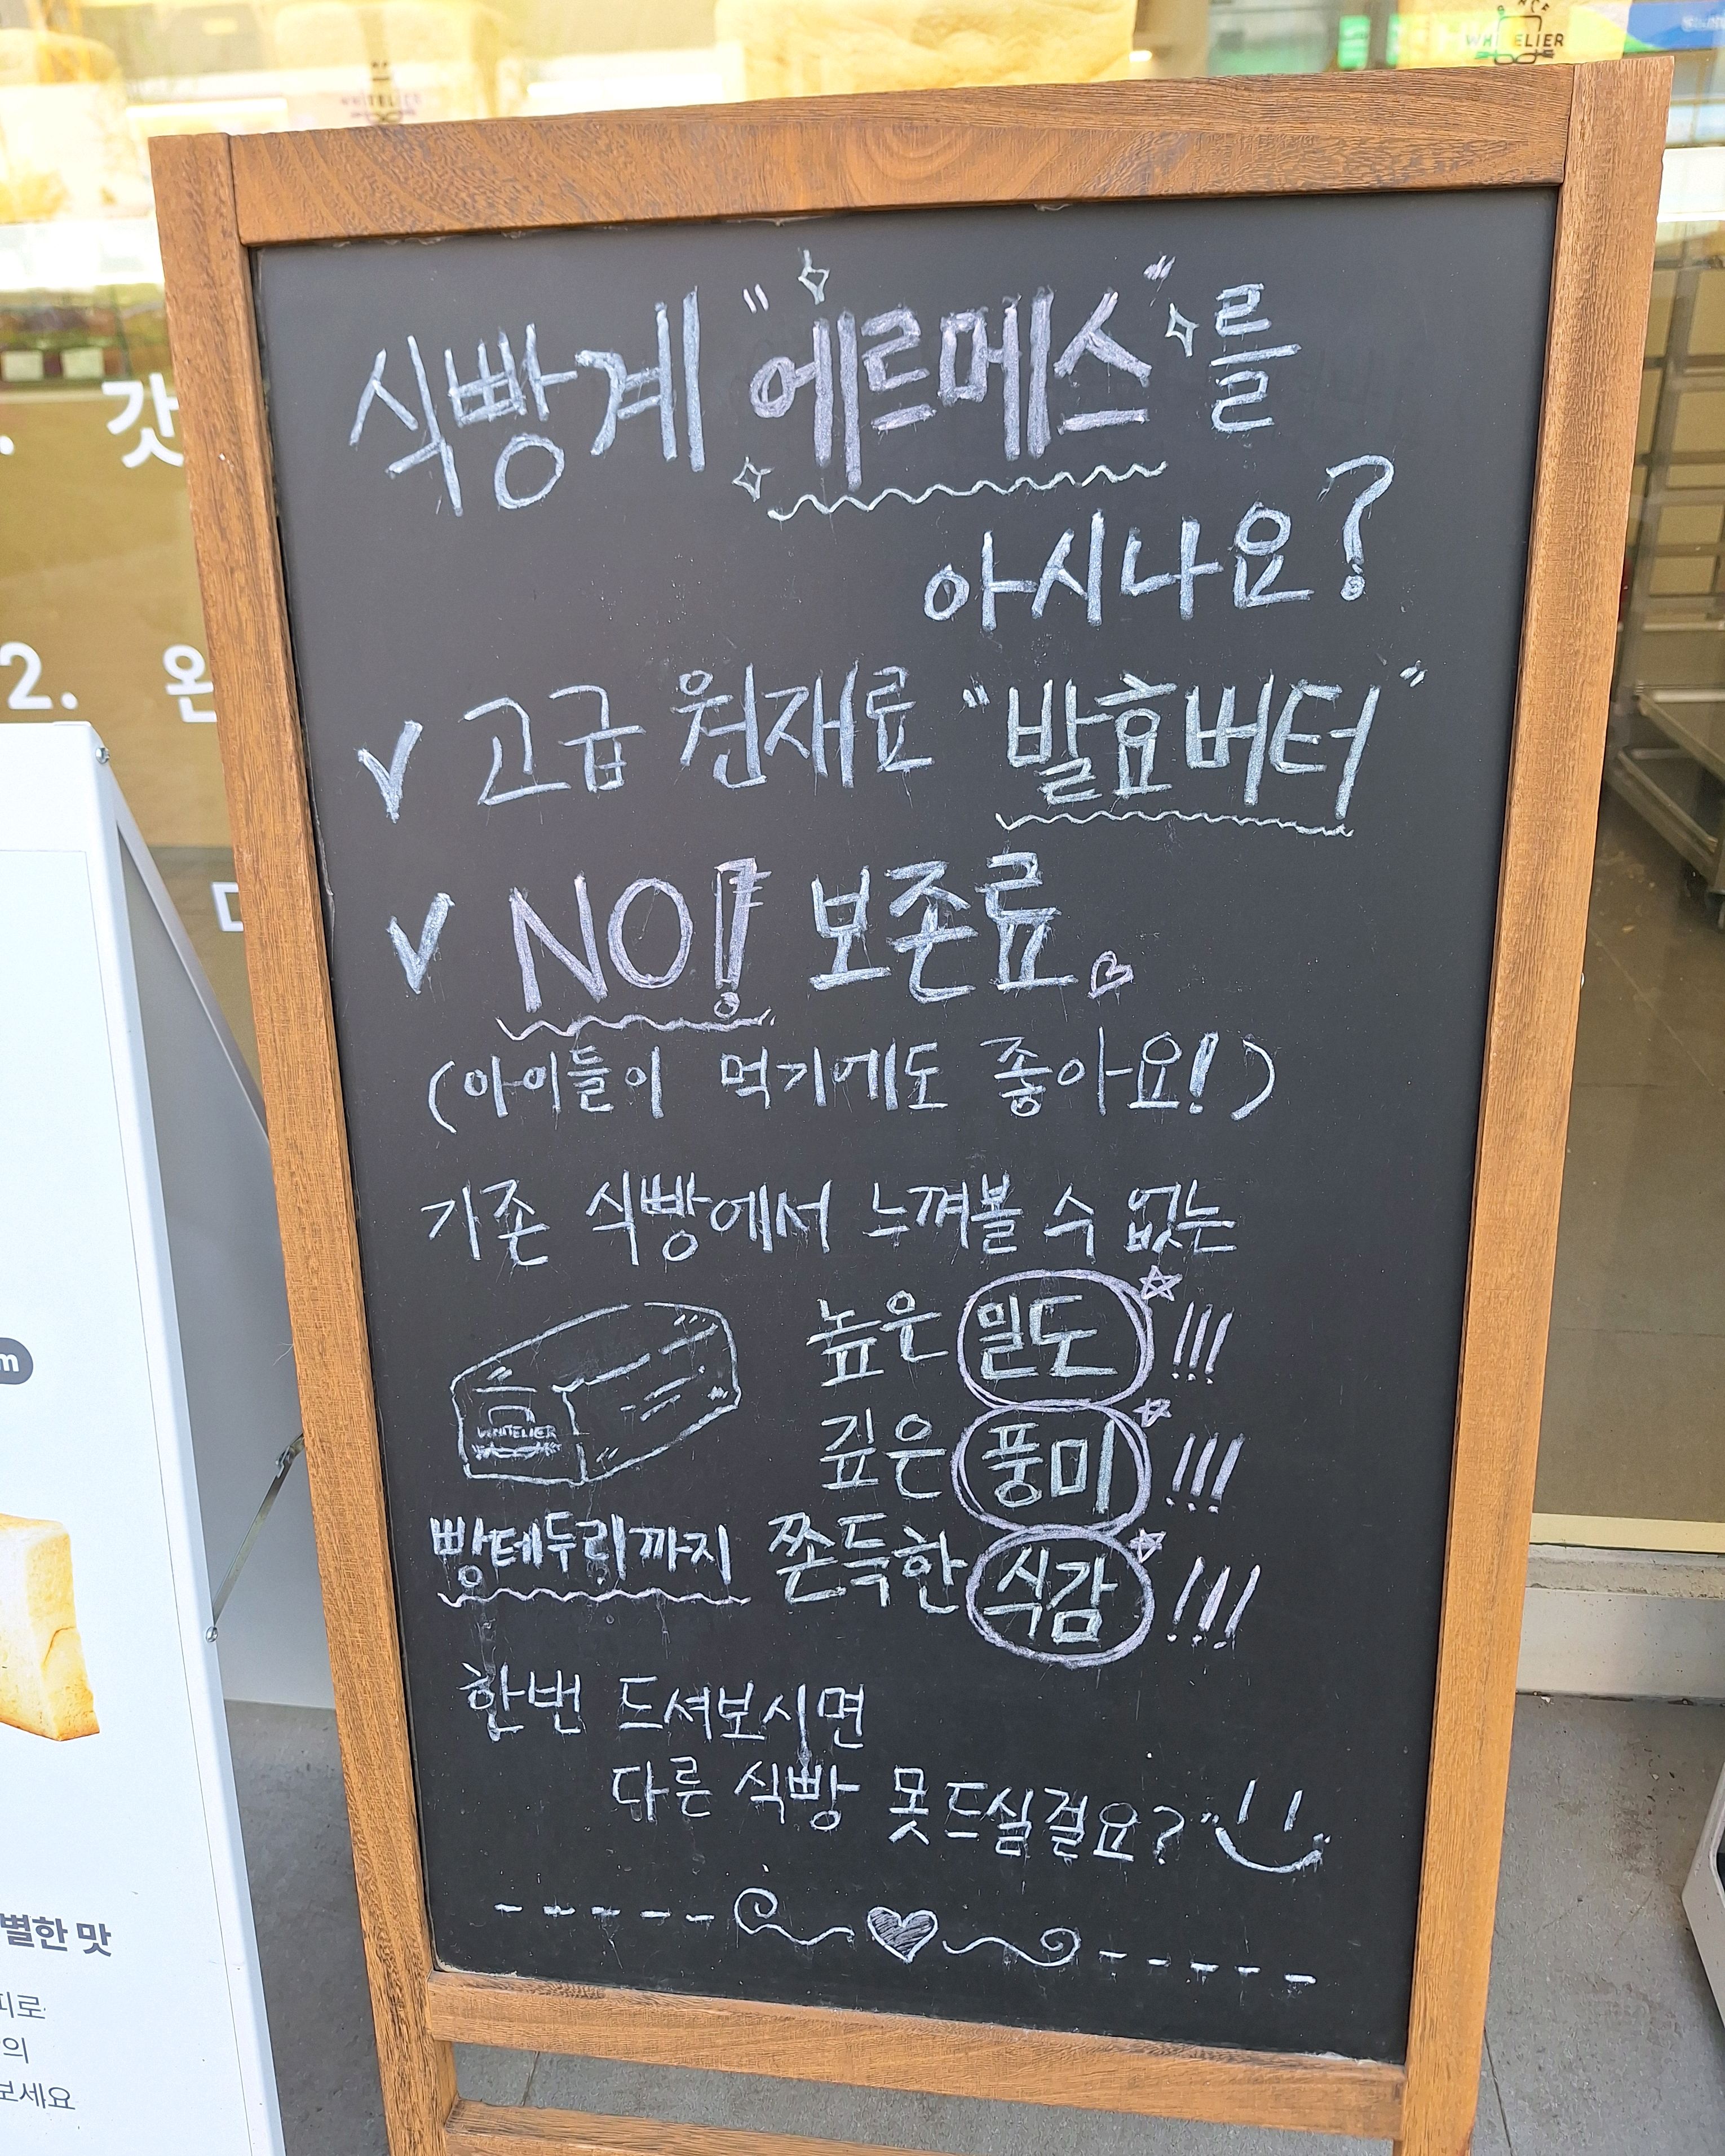 WHITELIER
WHITELIER
식빵계 "에르메스"를
아시나요?
✓ 고급 원재료 "발효버터"
✓ NO! 보존료
(아이들이 먹기에도 좋아요!)
기존 식빵에서 느껴볼 수 없는
높은 밀도!!!
깊은 풍미!!!
WHITELIER
빵테두리까지 쫀득한 식감!!!
한번 드셔보시면
다른 식빵 못드실걸요?
갓
2. 완
m
별한 맛
피로
의
보세요